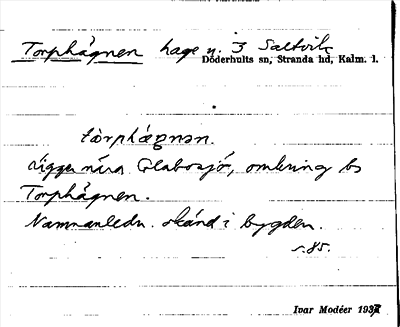 Torphägnen hage n. 3 Saltvik
Döderhults sn, Stranda hd, Kalm. l.
tòrphægnən.
ligger nära Glabosjö, omkring bs
Torphägnen.
Namnanledn. okänd i bygden.
s. 85.
Ivar Modéer 1937